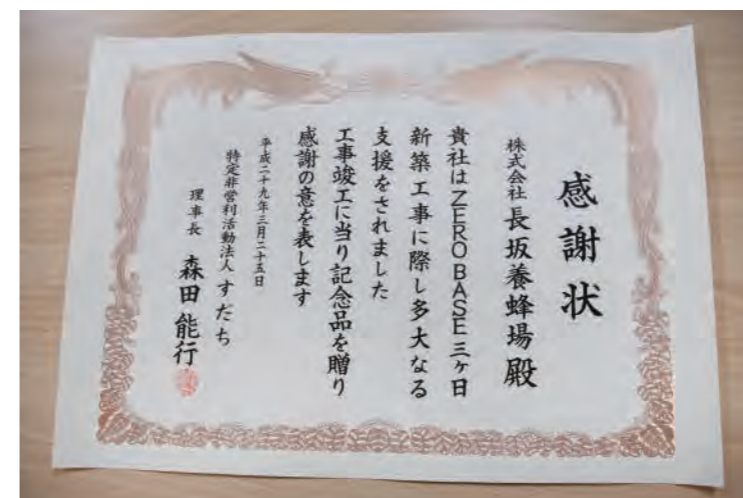 感謝状
株式会社 長坂養蜂場 殿
貴社はZERO BASE 三ヶ日
新築工事に際し多大なる
支援をされました
工事竣工に当り記念品を贈り
感謝の意を表します
平成二十九年三月二十五日
特定非営利活動法人 すだち
理事長 森田能行